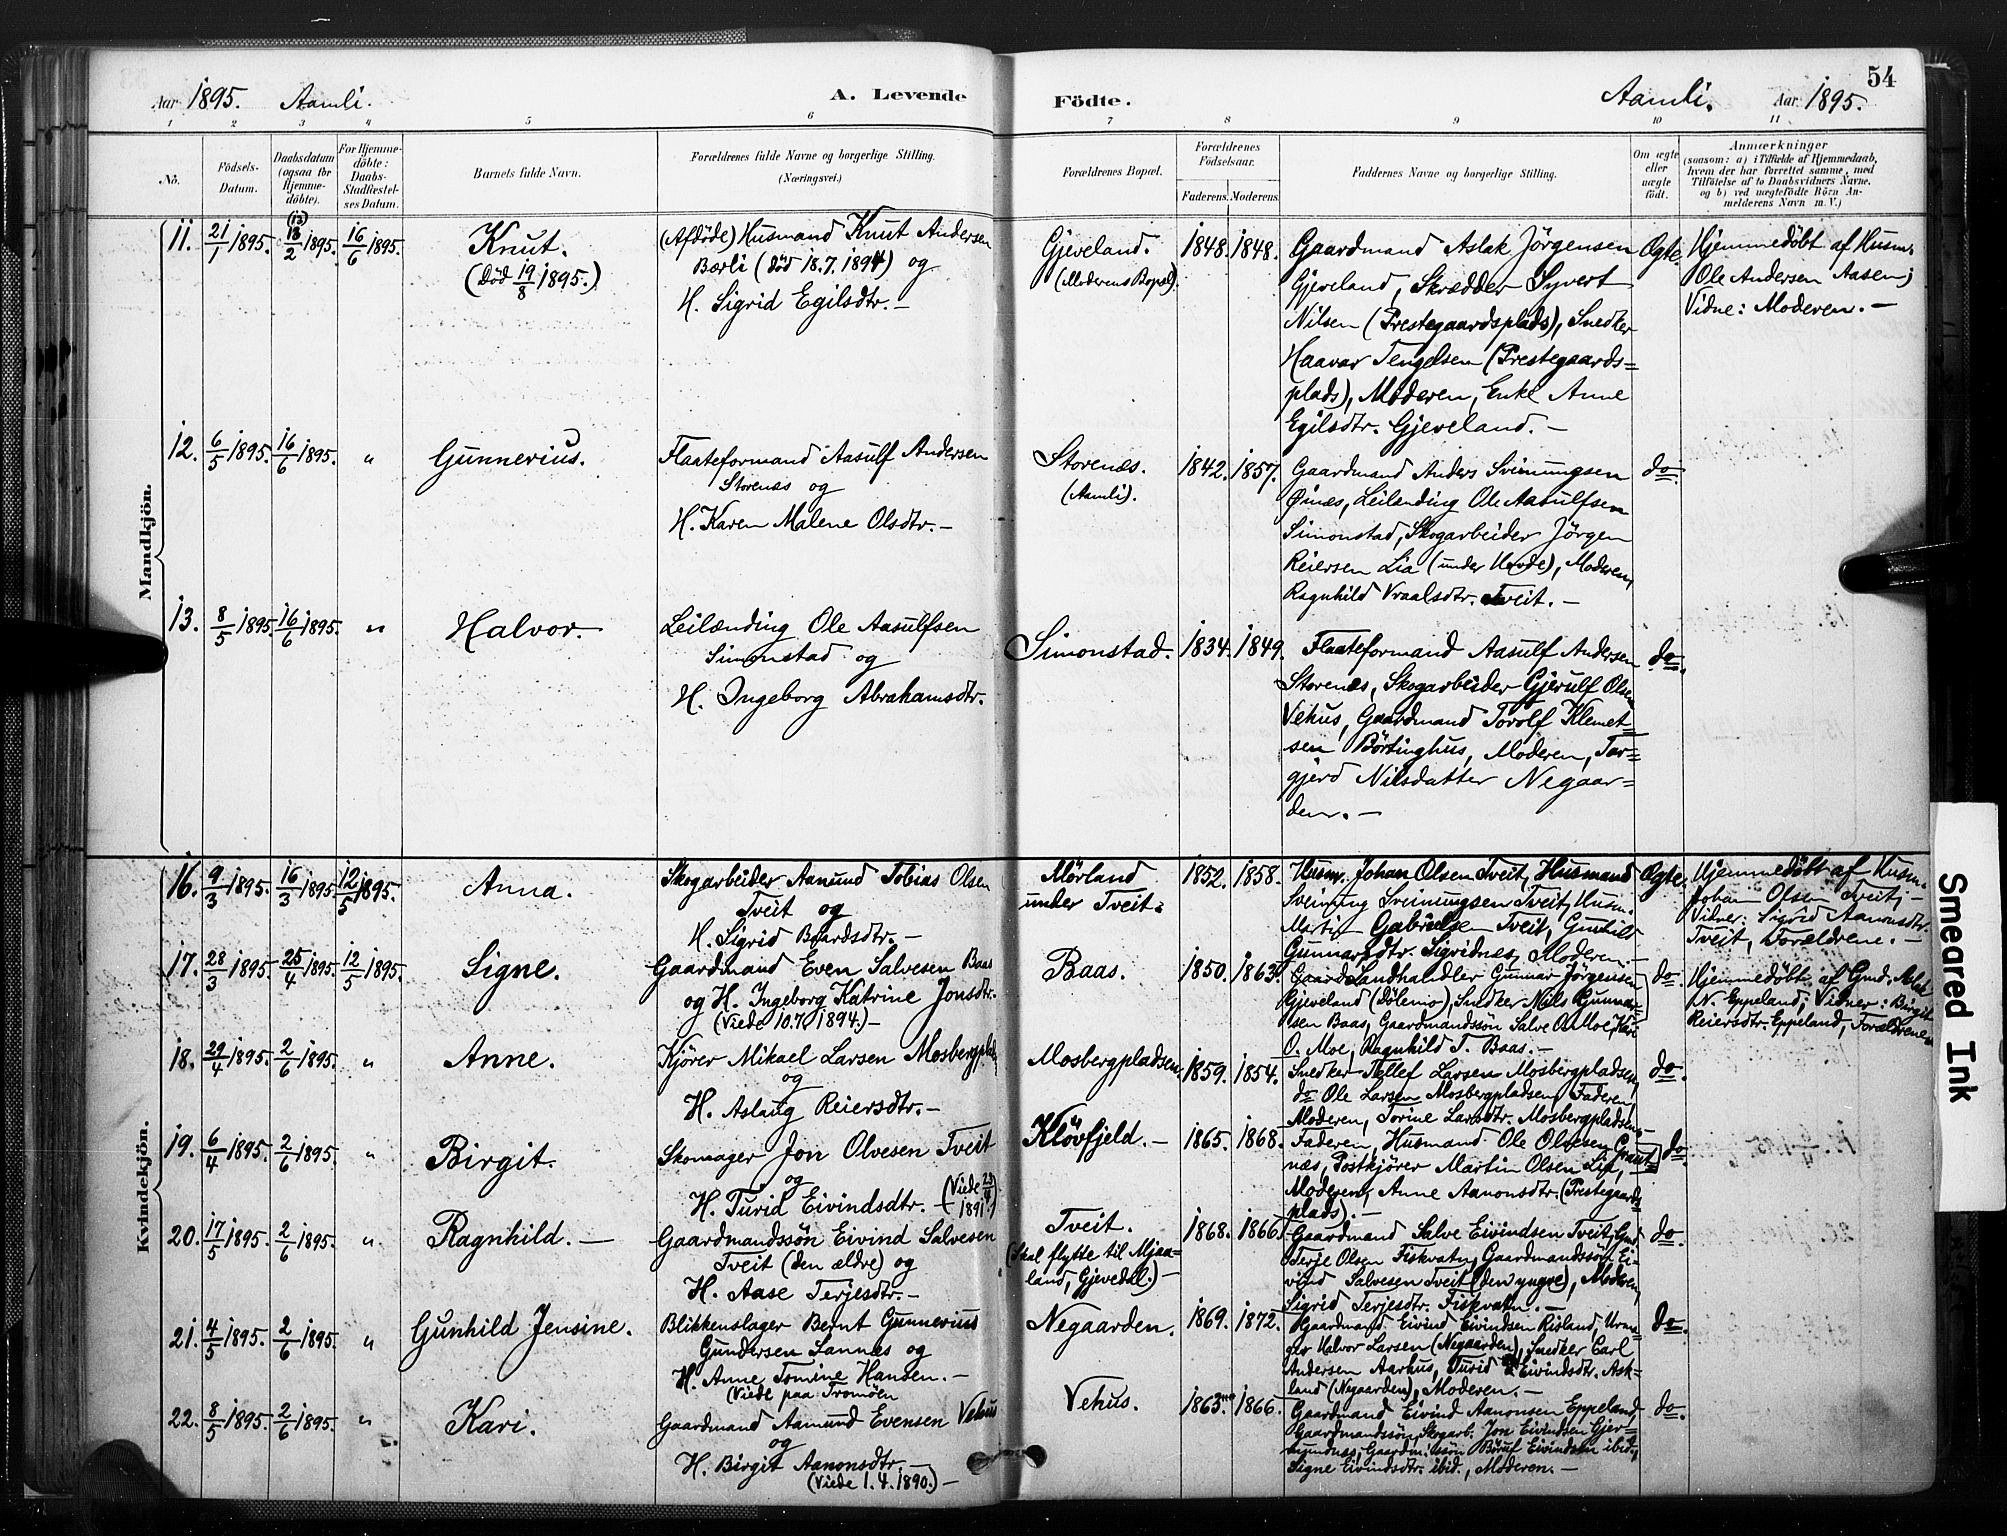 54
Aar 1895. Aamli. A. Levende Födte. Aamli. Aar 1895.
1 2 3 4 5 6 7 8 9 10 11
No.
Födsels-Datum.
Daabsdatum (ogsaa for Hjemmedöbte).
For Hjemmedöbte: Daabs-Stadfæstelses Datum.
Barnets fulde Navn.
Forældrenes fulde Navne og borgerlige Stilling.
(Næringsvei.)
Forældrenes Bopæl.
Forældrenes Födselsaar.
Faderens. Moderens.
Faddernes Navne og borgerlige Stilling.
Om ægte eller uægte födt.
Anmærkninger
(saasom: a) i Tilfælde af Hjemmedaab,
hvem der har forrettet samme, med
Tilföielse af to Daabsvidners Navne,
og b) ved uægtefödte Börn An-
melderens Navn m. V.)
Mandkjön.
11. 21/1 1895. (13) 13/2 1895. 16/6 1895.
Knut.
(Död 19/8 1895.)
(Afdöde) Husmand Knut Andersen
Bærli (död 18.7.1894) og
H. Sigrid Egilsdtr. —
Gjeveland.
(Moderens Bopæl).
1848. 1848.
Gaardmand Aslak Jörgensen
Gjeveland, Skrædder Syvert
Nilsen (Prestegaardsplads), Snedker
Haavar Tengelsen (Prestegaards=
plads), Moderen, Enke Anne
Egilsdtr. Gjeveland. —
Ægte.
Hjemmedöbt af Husm.
Ole Andersen Aasen;
Vidne: Moderen. —
12. 6/5 1895. 16/6 1895. "
Gunnerius.
Flaateformand Aasulf Andersen
Storenæs og
H. Karen Malene Olsdtr. —
Storenæs.
(Aamli).
1842. 1857.
Gaardmand Anders Svinungsen
Øinæs, Leilending Ole Aasulfsen
Simonstad, Skogarbeider Jörgen
Reiersen Lia (under Hovde), Moderen,
Ragnhild Vraalsdtr. Tveit. —
do.
13. 8/5 1895. 16/6 1895. "
Halvor.
Leilænding Ole Aasulfsen
Simonstad og
H. Ingeborg Abrahamsdtr.
Simonstad.
1834. 1849.
Flaateformand Aasulf Andersen
Storenæs, Skogarbeider Gjerulf Olsen
Vehus, Gaardmand Torolf Klemet=
sen Börtinghus, Moderen, Tar=
gjerd Nilsdatter Negaar=
den. —
do.
Kvindekjön.
16. 9/3 1895. 16/3 1895. 12/5 1895.
Anna.
Skogarbeider Aanund Tobias Olsen
Tveit og
H. Sigrid Baardsdtr. —
Mörland
under Tveit.
1852. 1858.
Husm. Johan Olsen Tveit, Husmand
Sveinung Sveinungsen Tveit, Husm.
Martin Gabrielsen Tveit, Gunhild
Gunnarsdtr. Sigridnæs, Moderen. —
Ægte.
Hjemmedöbt af Husm.
Johan Olsen Tveit; —
Vidner: Sigrid Aanonsdtr.
Tveit, Forældrene. —
17. 28/3 1895. 25/4 1895. 12/5 1895.
Signe.
Gaardmand Even Salvesen Baas
og H. Ingeborg Katrine Jonsdtr.
(Viede 10.7.1894.) —
Baas.
1850. 1863.
Landhandler Gunnar Jörgensen
Gjeveland (Dölemo), Snedker Nils Gunnar=
sen Baas, Gaardmandssön Salve O. Moe, Kari
O. Moe, Ragnhild T. Baas. —
do.
Hjemmedöbt af Gmd. Aslak
N. Eppeland; Vidner: Birgit
Reiersdtr. Eppeland, Forældrene.
18. 29/4 1895. 2/6 1895. "
Anne.
Kjörer Mikael Larsen Mosbergplads
og
H. Aslaug Reiersdtr. —
Mosbergpladsen.
1859. 1854.
Snedker Tellef Larsen Mosbergpladsen,
do Ole Larsen Mosbergpladsen, Faderen,
Moderen, Torine Larsdtr. Mosbergpladsen. —
do.
19. 6/4 1895. 2/6 1895. "
Birgit.
Skomager Jon Olvesen Tveit
og
H. Turid Eivindsdtr. — (Viede 23/4 1891.)
Klövfjeld. —
1865. 1868.
Faderen, Husmand Ole Olvesen Graut=
næs, Postkjörer Martin Olsen Lia,
Moderen, Anne Aanonsdtr. (Prestegaards
plads). —
do.
20. 17/5 1895. 2/6 1895. "
Ragnhild. —
Gaardmandssön Eivind Salvesen
Tveit (den ældre) og
H. Aase Terjesdtr. —
Tveit.
(Skal flytte til Mjaa=
land, Gjevedal.) —
1868. 1866.
Gaardmand Salve Eivindsen Tveit, Gmd.
Terje Olsen Fiskvatn, Gaardmandssön Ei=
vind Salvesen Tveit (den yngre), Moderen,
Sigrid Terjesdtr. Fiskvatn. —
do.
21. 4/5 1895. 2/6 1895. "
Gunhild Jensine.
Blikkenslager Bernt Gunnerius
Gundersen Sannes og
H. Anne Tomine Hansen. —
(Viede paa Tromöen
Negaarden.
1869. 1872.
Gaardmand Eivind Eivindsen Risland, Urma=
ger Halvor Larsen (Negaarden), Snedker Carl
Andersen Aarhus, Turid Eivindsdtr. Ask=
land (Negaarden), Moderen. —
do.
22. 8/5 1895. 2/6 1895. "
Kari.
Gaardmand Aamund Evensen Vehus
og
H. Birgit Aanonsdtr. —
(Viede 1.4.1890.) —
Vehus.
1863. 1866.
Gaardmand Eivind Aanonsen Eppeland,
Gaardmandssön, Skogarb. Jon Eivindsen Gjer=
mundnæs, Gaardm.ssön Böruf Eivindsen ibid.,
Signe Eivindsdtr. ibid., Moderen. —
do.
Smeared Ink